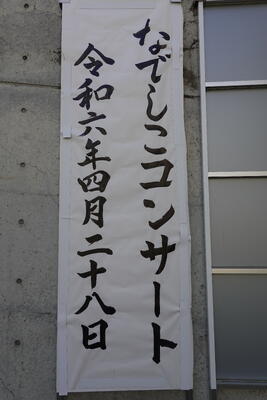 なでしこコンサート
令和六年四月二十八日